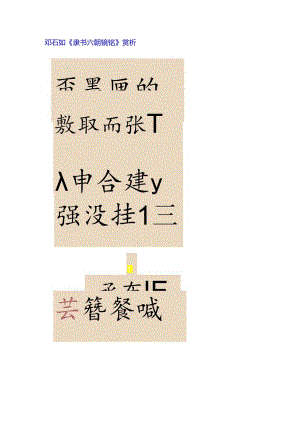 邓石如《隶书六朝镜铭》赏析
歪黑匣的
敷取而张T
λ申合建y
强没挂1三
承布IF
芸簪餐喊